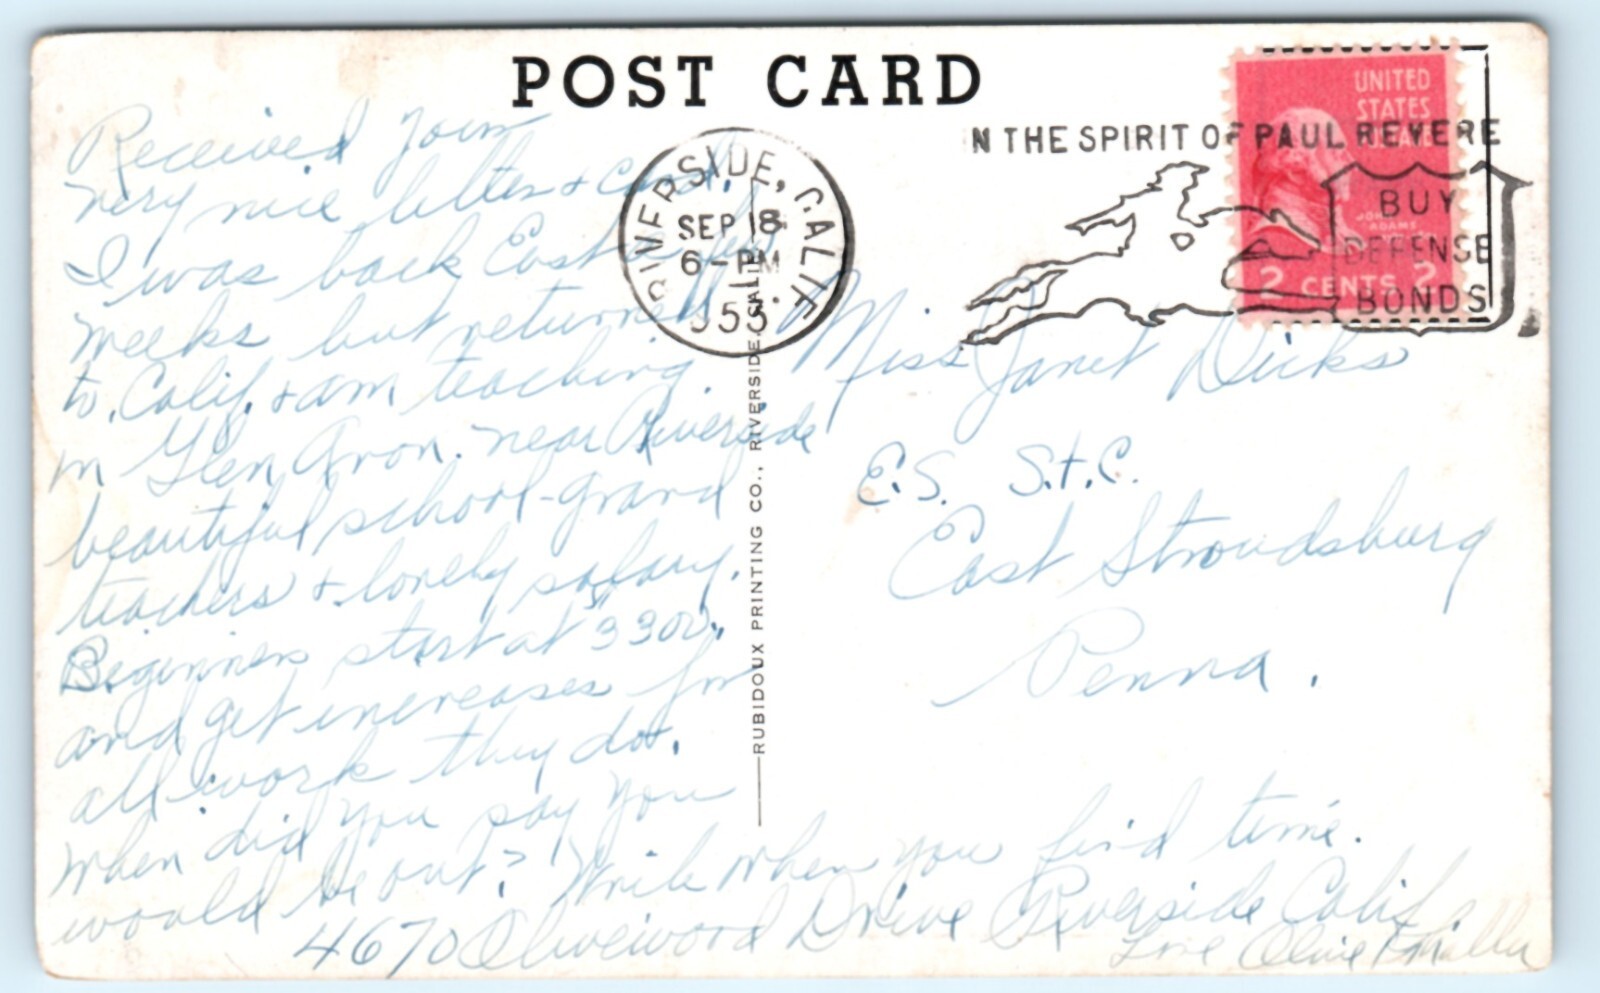 POST CARD
Received your
very nice letter & card.
I was back East a few
weeks but returned
to Calif. & am teaching
in Glen Avon near Riverside
beautiful school - grand
teachers & lovely salary.
Beginners start at 3300.
and get increases for
all work they do.
When did you say you
would be out? Write when you find time.
4670 Olivewood Drive Riverside Calif.
Love Olive
RIVERSIDE, CALIF
SEP 18
6-PM
1953
N THE SPIRIT OF PAUL REVERE
BUY
DEFENSE
BONDS
UNITED
STATES
JOHN
ADAMS
2 CENTS 2
Miss Janet Dicks
E.S. S.T.C.
East Stroudsburg
Penna.
RUBIDOUX PRINTING CO., RIVERSIDE, CALIF.